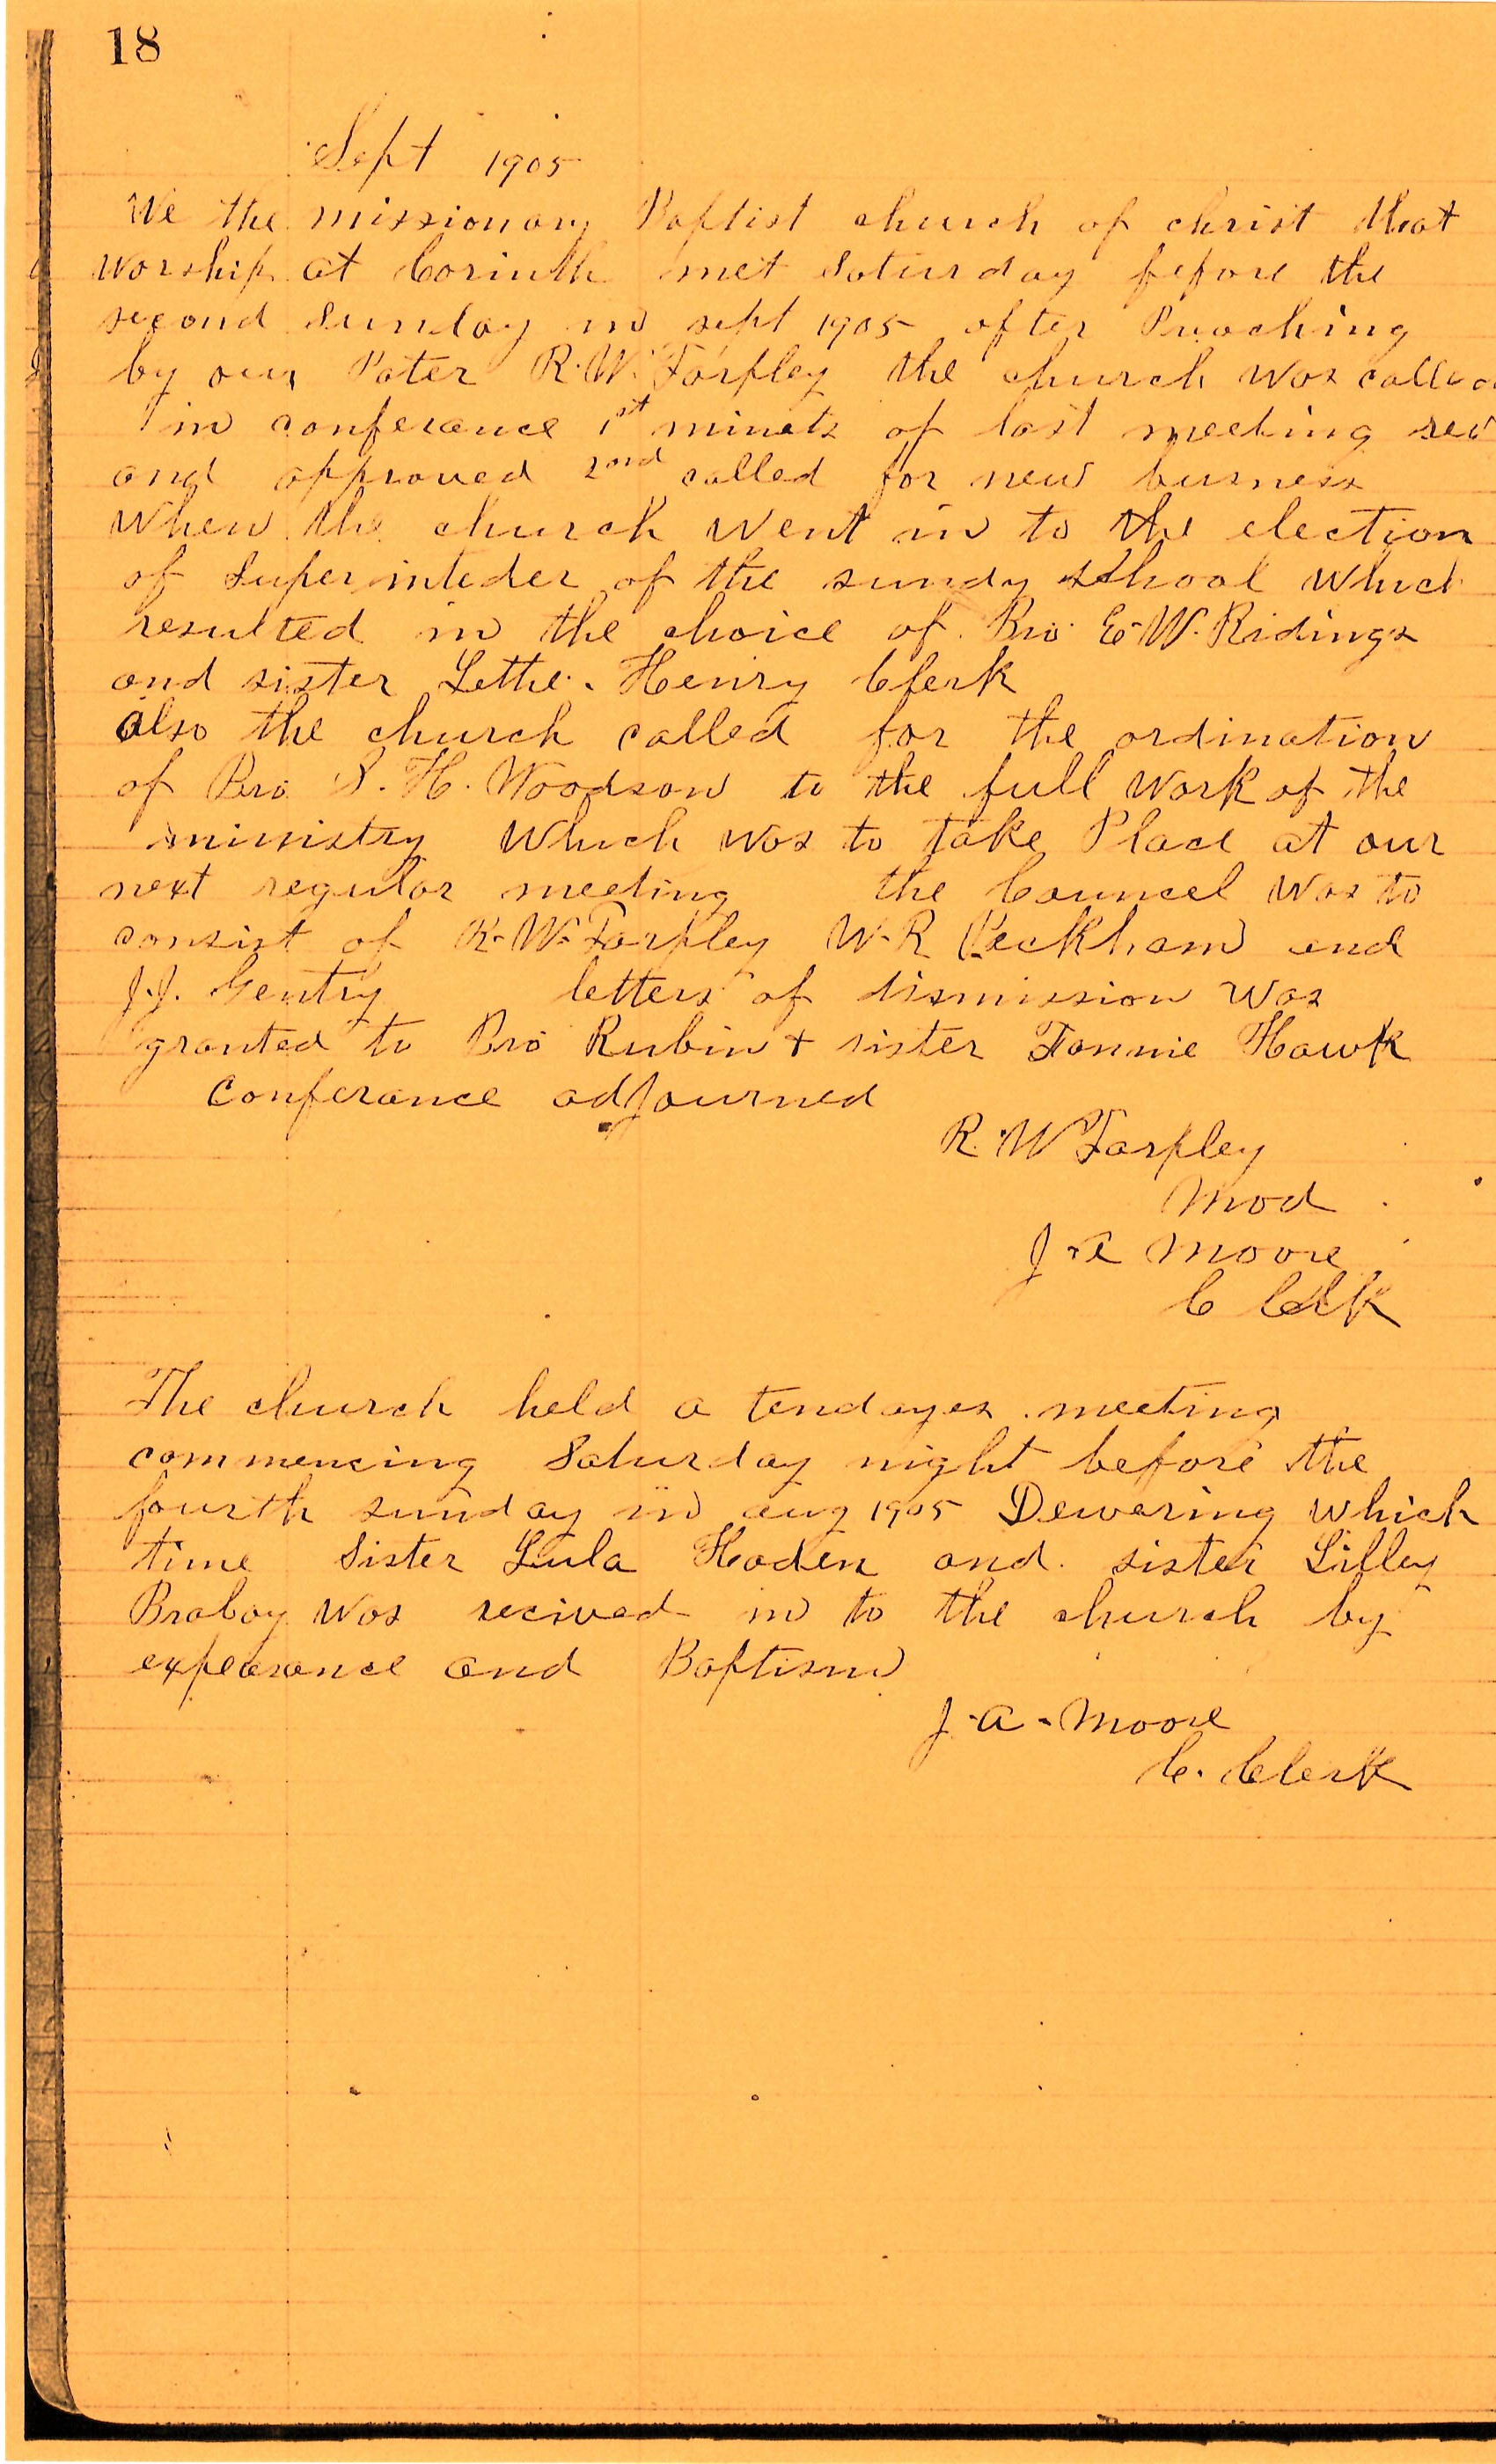 18
Sept 1905
We the missionary Baptist church of christ that
worship at Corinth met Saturday before the
second Sunday in sept 1905 after Preaching
by our Pater R. W. Tarpley the church was called
in conferance 1st minets of last meeting red
and approved 2ond called for new busness
When the church went in to the election
of Superinteder of the sundy school which
resulted in the choice of Bro E. W. Ridings
and sister Lethe. Henry Clerk
also the church called for the ordination
of Bro S. H. Woodson to the full work of the
ministry which was to take Place at our
next regular meeting the Councel was to
consist of R. W. Tarpley W. R Peckham and
J. J. Gentry letters of dismission was
granted to Bro Rubin + sister Fannie Hawk
Conferance adjourned
R. W Tarpley
Mod
J. A Moore
C Clerk
The church held a tendayes meeting
commencing Saturday night before the
fourth sunday in aug 1905 Dewering which
time Sister Lula Haden and sister Lilley
Braboy was recived in to the church by
expearance and Baptism
J. A. Moore
C. Clerk